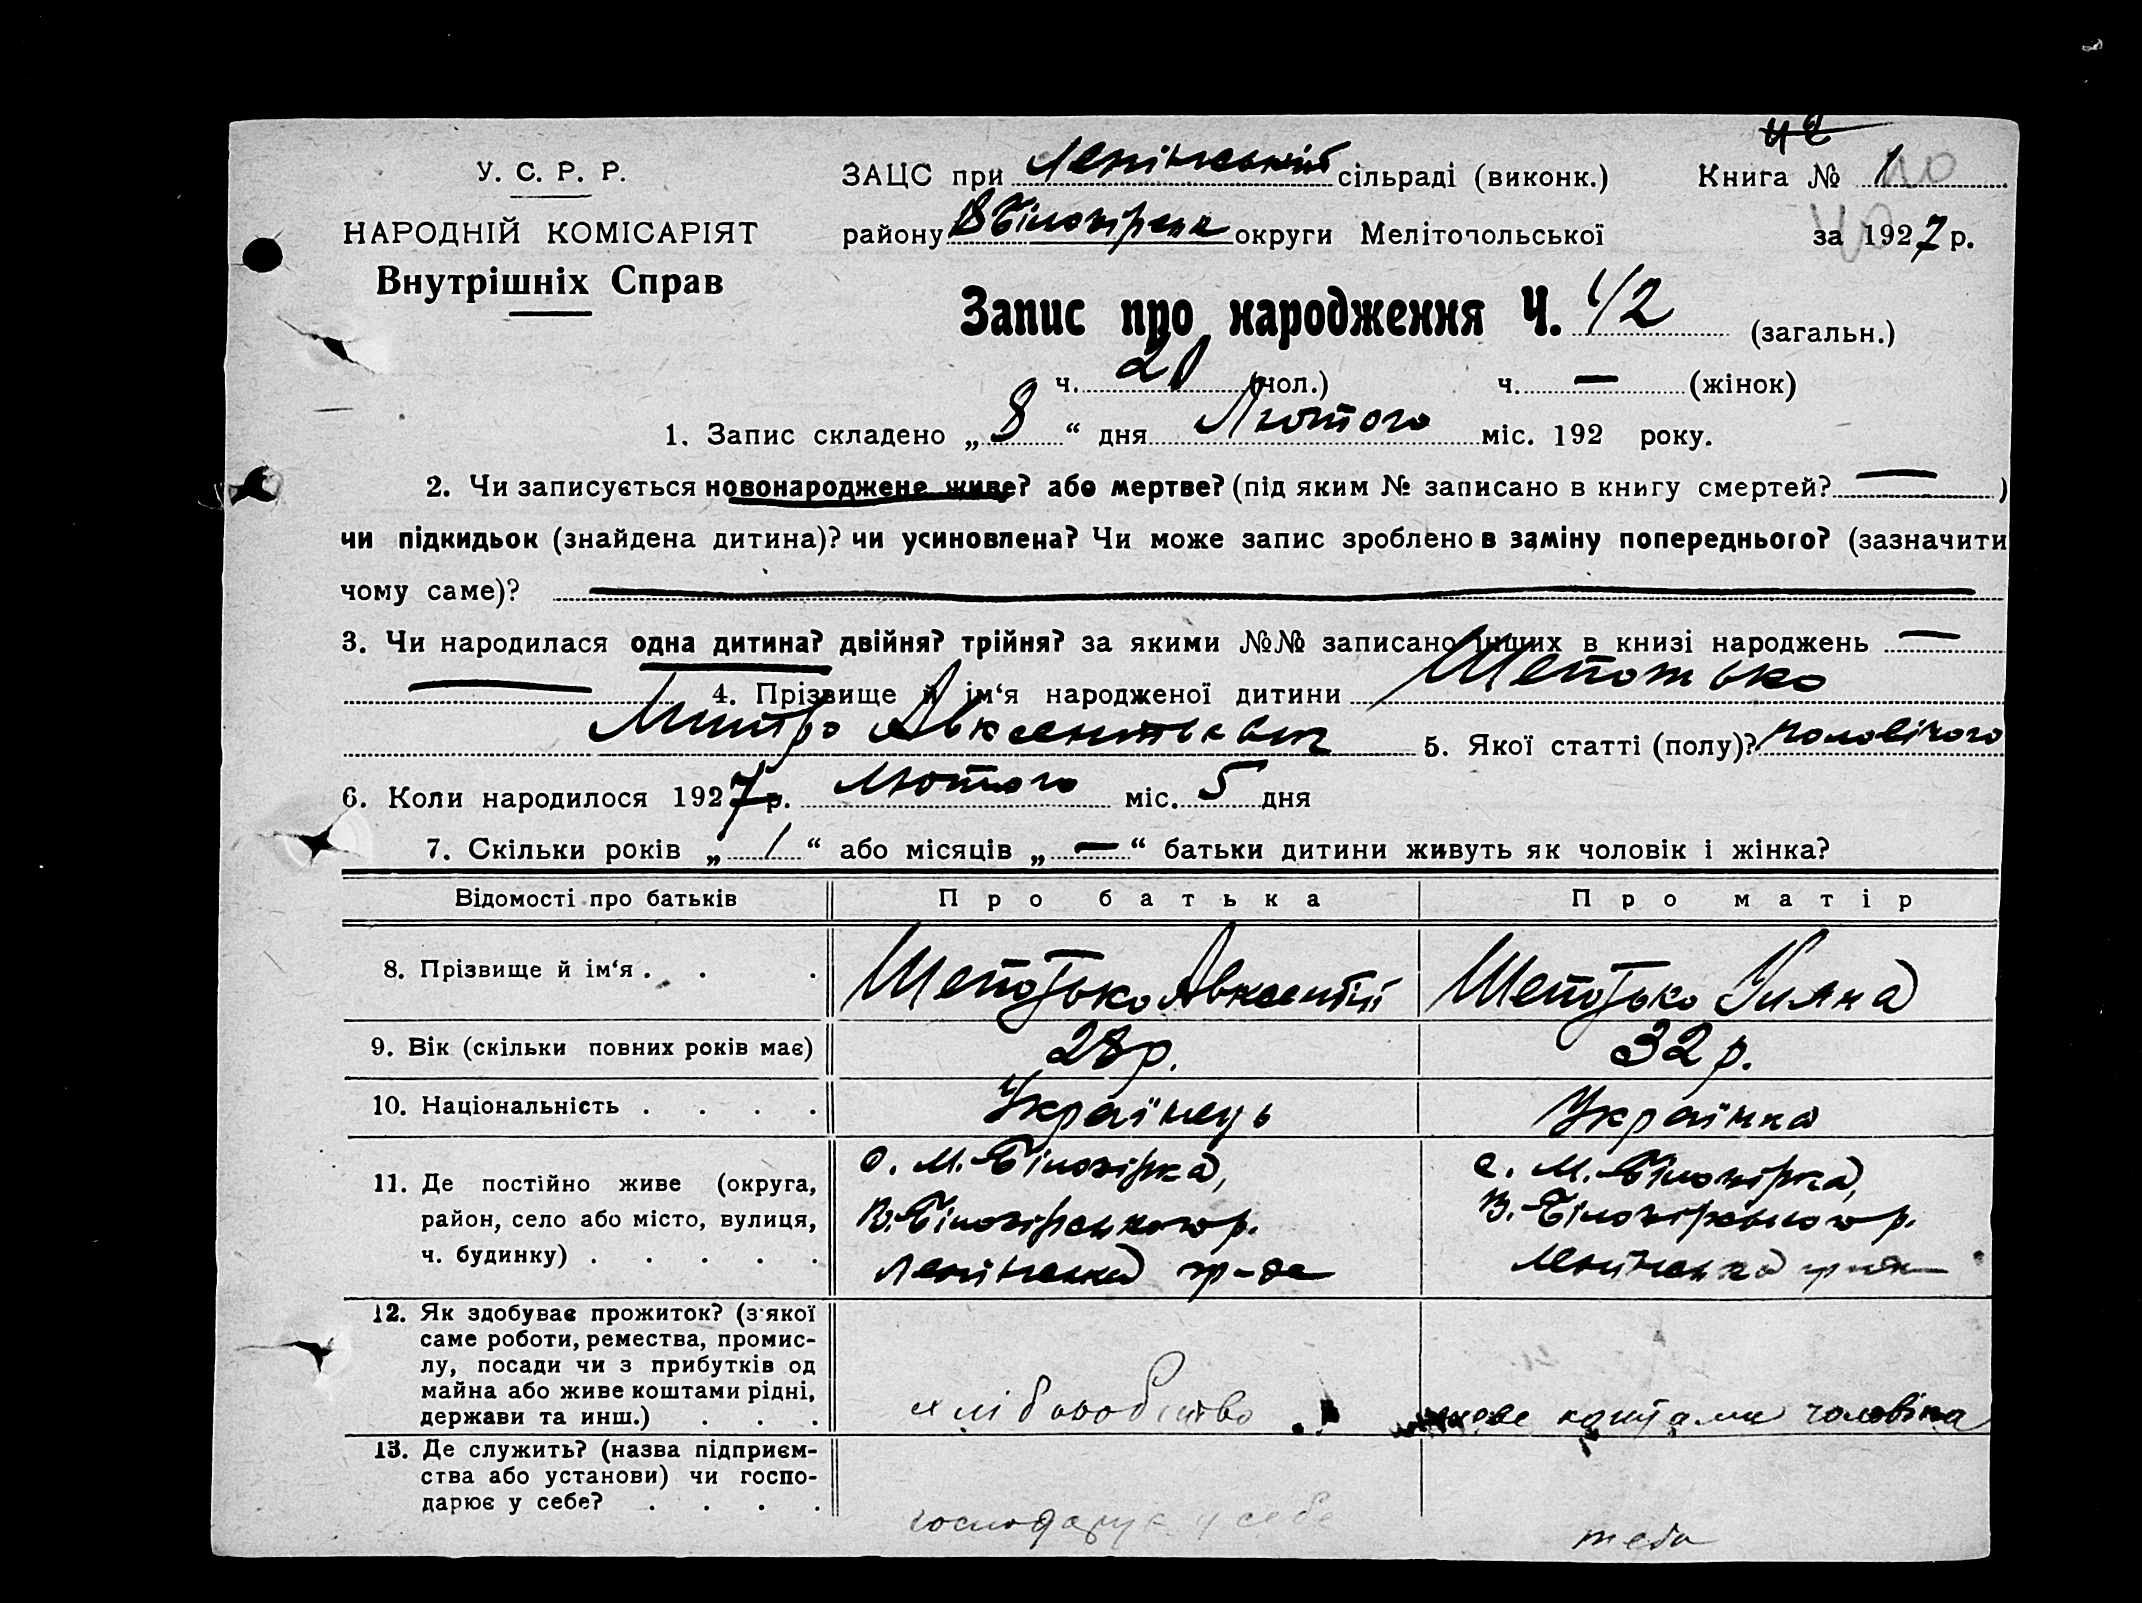 42
У. С. Р. Р.
НАРОДНІЙ КОМІСАРІЯТ
Внутрішніх Справ
ЗАЦС при Ленінській сільраді (виконк.) Книга № 1 40
району ВБілозірськ округи Мелітопольської за 1927 р.
40
Запис про народження Ч. 42 (загальн.)
ч. 20 (чол.) ч. — (жінок)
1. Запис складено „ 8 “ дня Лютого міс. 192 року.
2. Чи записується новонароджене живе? або мертве? (під яким № записано в книгу смертей? — )
чи підкидьок (знайдена дитина)? чи усиновлена? Чи може запис зроблено в заміну попереднього? (зазначити
чому саме)? —
3. Чи народилася одна дитина? двійня? трійня? за якими №№ записано інших в книзі народжень —
— 4. Прізвище й ім‘я народженої дитини Шепотько
Митро Авксентьевич 5. Якої статті (полу)? чоловічого
6. Коли народилося 1927 р. Лютого міс. 5 дня
7. Скільки років „ 1 “ або місяців „ — “ батьки дитини живуть як чоловік і жінка?
Відомості про батьків Про батька Про матір
8. Прізвище й ім‘я . . . Шепотько Авксентій Шепотько Уляна
9. Вік (скільки повних років має) 28 р. 32 р.
10. Національність . . . . Українець Українка
11. Де постійно живе (округа, с. М. Білозірка, с. М. Білозірка,
район, село або місто, вулиця, В. Білозірського р. В. Білозірського р.
ч. будинку) . . . . . Ленінська гр-да Ленінська
12. Як здобуває прожиток? (з якої
саме роботи, ремества, промис-
лу, посади чи з прибутків од
майна або живе коштами рідні,
держави та инш.) . . . хліборобство живе коштами чоловіка
13. Де служить? (назва підприєм-
ства або установи) чи госпо-
дарює у себе? . . . . господарує у себе теж